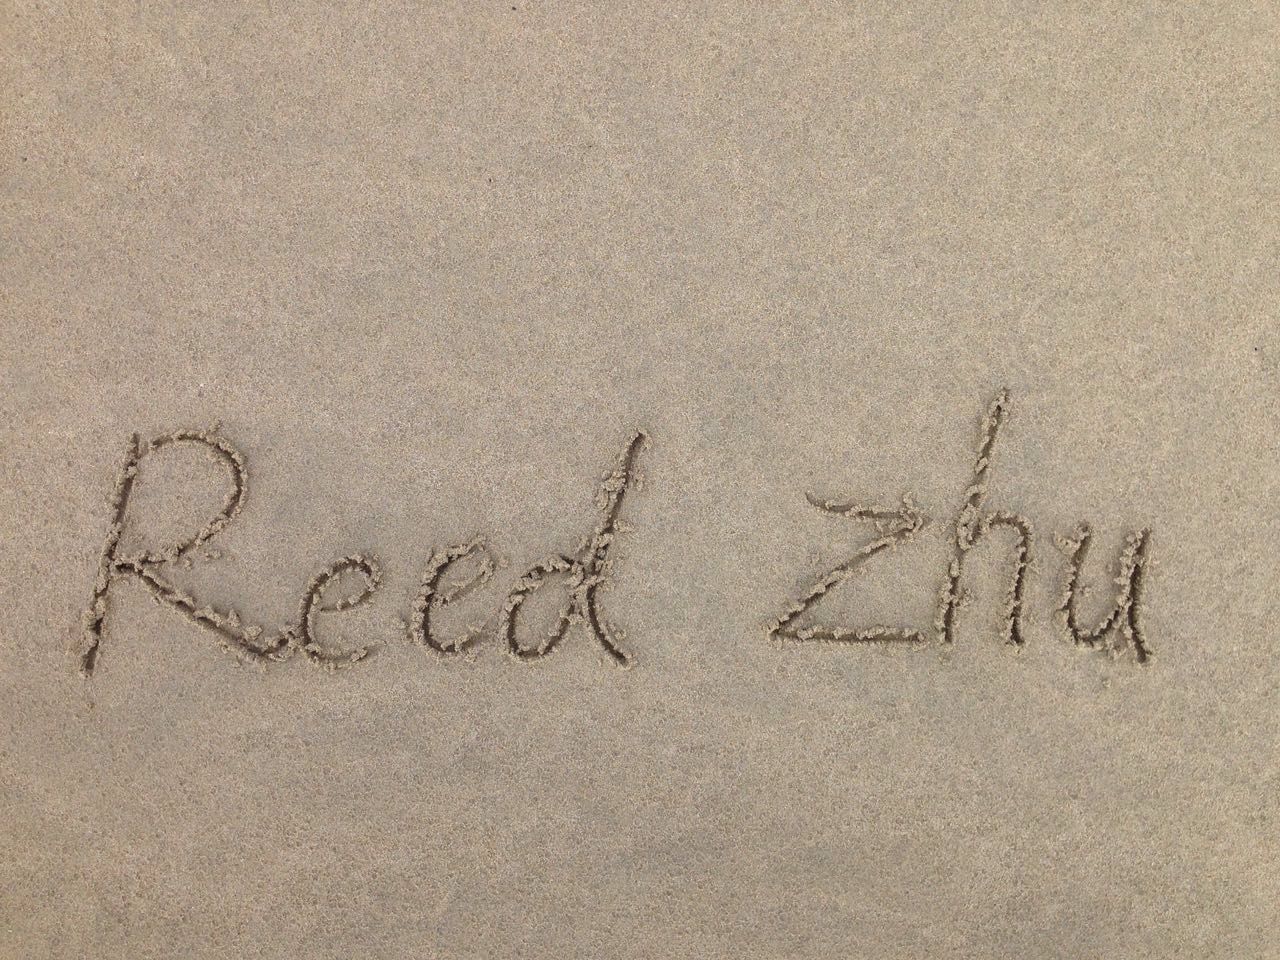 Reed Zhu